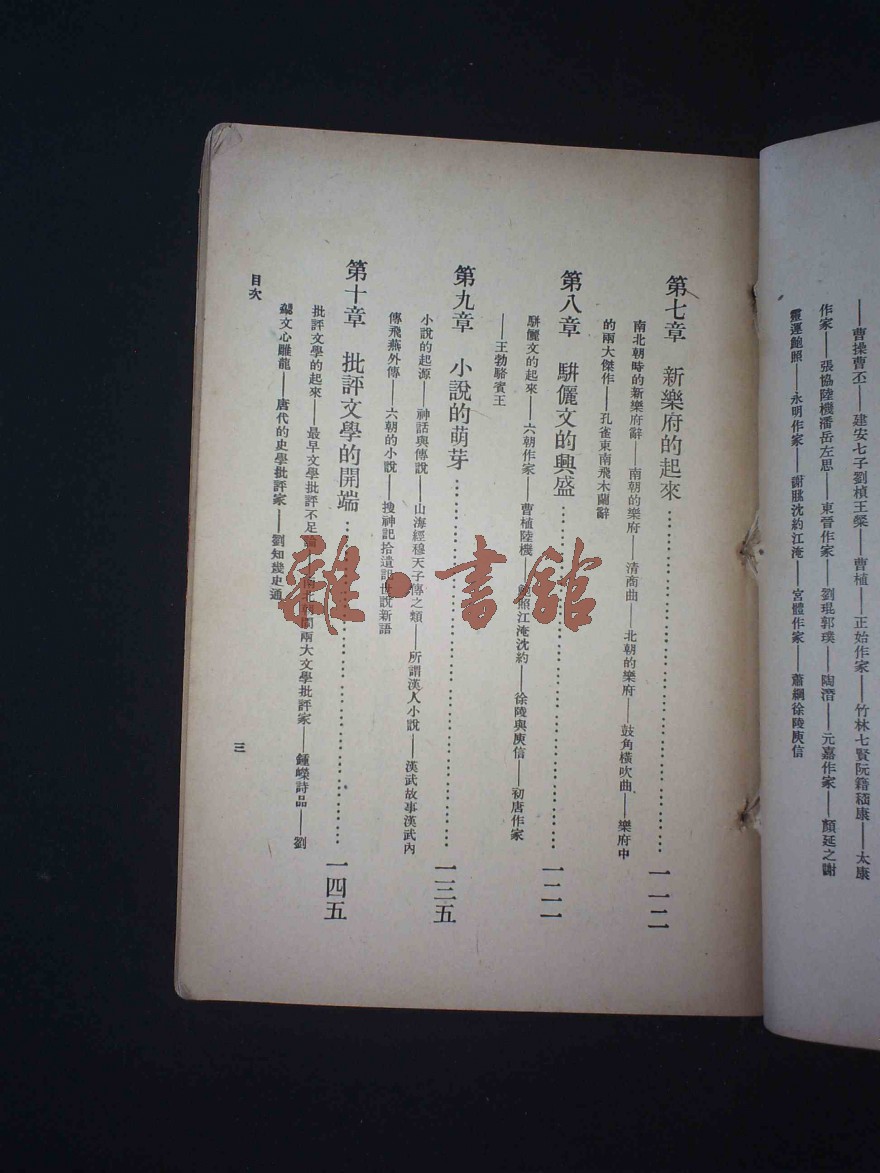 ——曹操曹丕——建安七子劉楨王粲——曹植——正始作家——竹林七賢阮籍嵇康——太康
作家——張協陸機潘岳左思——東晉作家——劉琨郭璞——陶潛——元嘉作家——顏延之謝
靈運鮑照——永明作家——謝朓沈約江淹——宮體作家——蕭綱徐陵庾信
第七章 新樂府的起來……一一二
南北朝時的新樂府辭——南朝的樂府——清商曲——北朝的樂府——鼓角橫吹曲——樂府中
的兩大傑作——孔雀東南飛木蘭辭
第八章 駢儷文的興盛……一二一
駢儷文的起來——六朝作家——曹植陸機——鮑照江淹沈約——徐陵與庾信——初唐作家
——王勃駱賓王
第九章 小說的萌芽……一三五
小說的起源——神話與傳說——山海經穆天子傳之類——所謂漢人小說——漢武故事漢武內
傳飛燕外傳——六朝的小說——搜神記拾遺記世說新語
第十章 批評文學的開端……一四五
批評文學的起來——最早文學批評不足論——南北朝間兩大文學批評家——鍾嶸詩品——劉
勰文心雕龍——唐代的史學批評家——劉知幾史通
目次
三
雜·書館